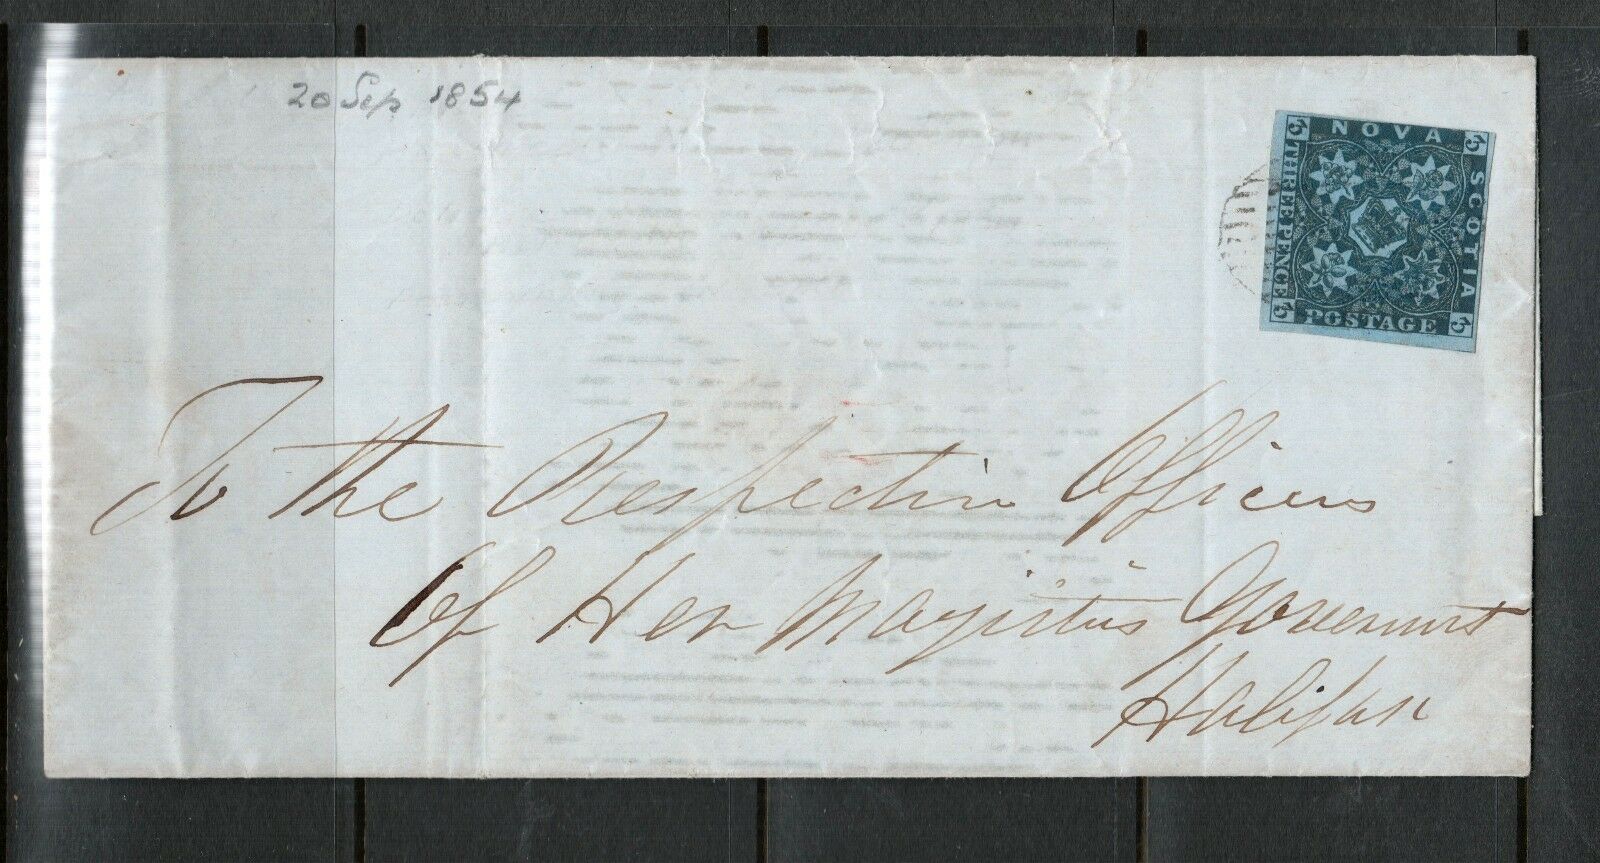 20 Sep 1854
3 NOVA 3
SCOTIA
THREE PENCE
3 POSTAGE 3
To the Respective Officers
Of Her Majesties Goverment
Halifax